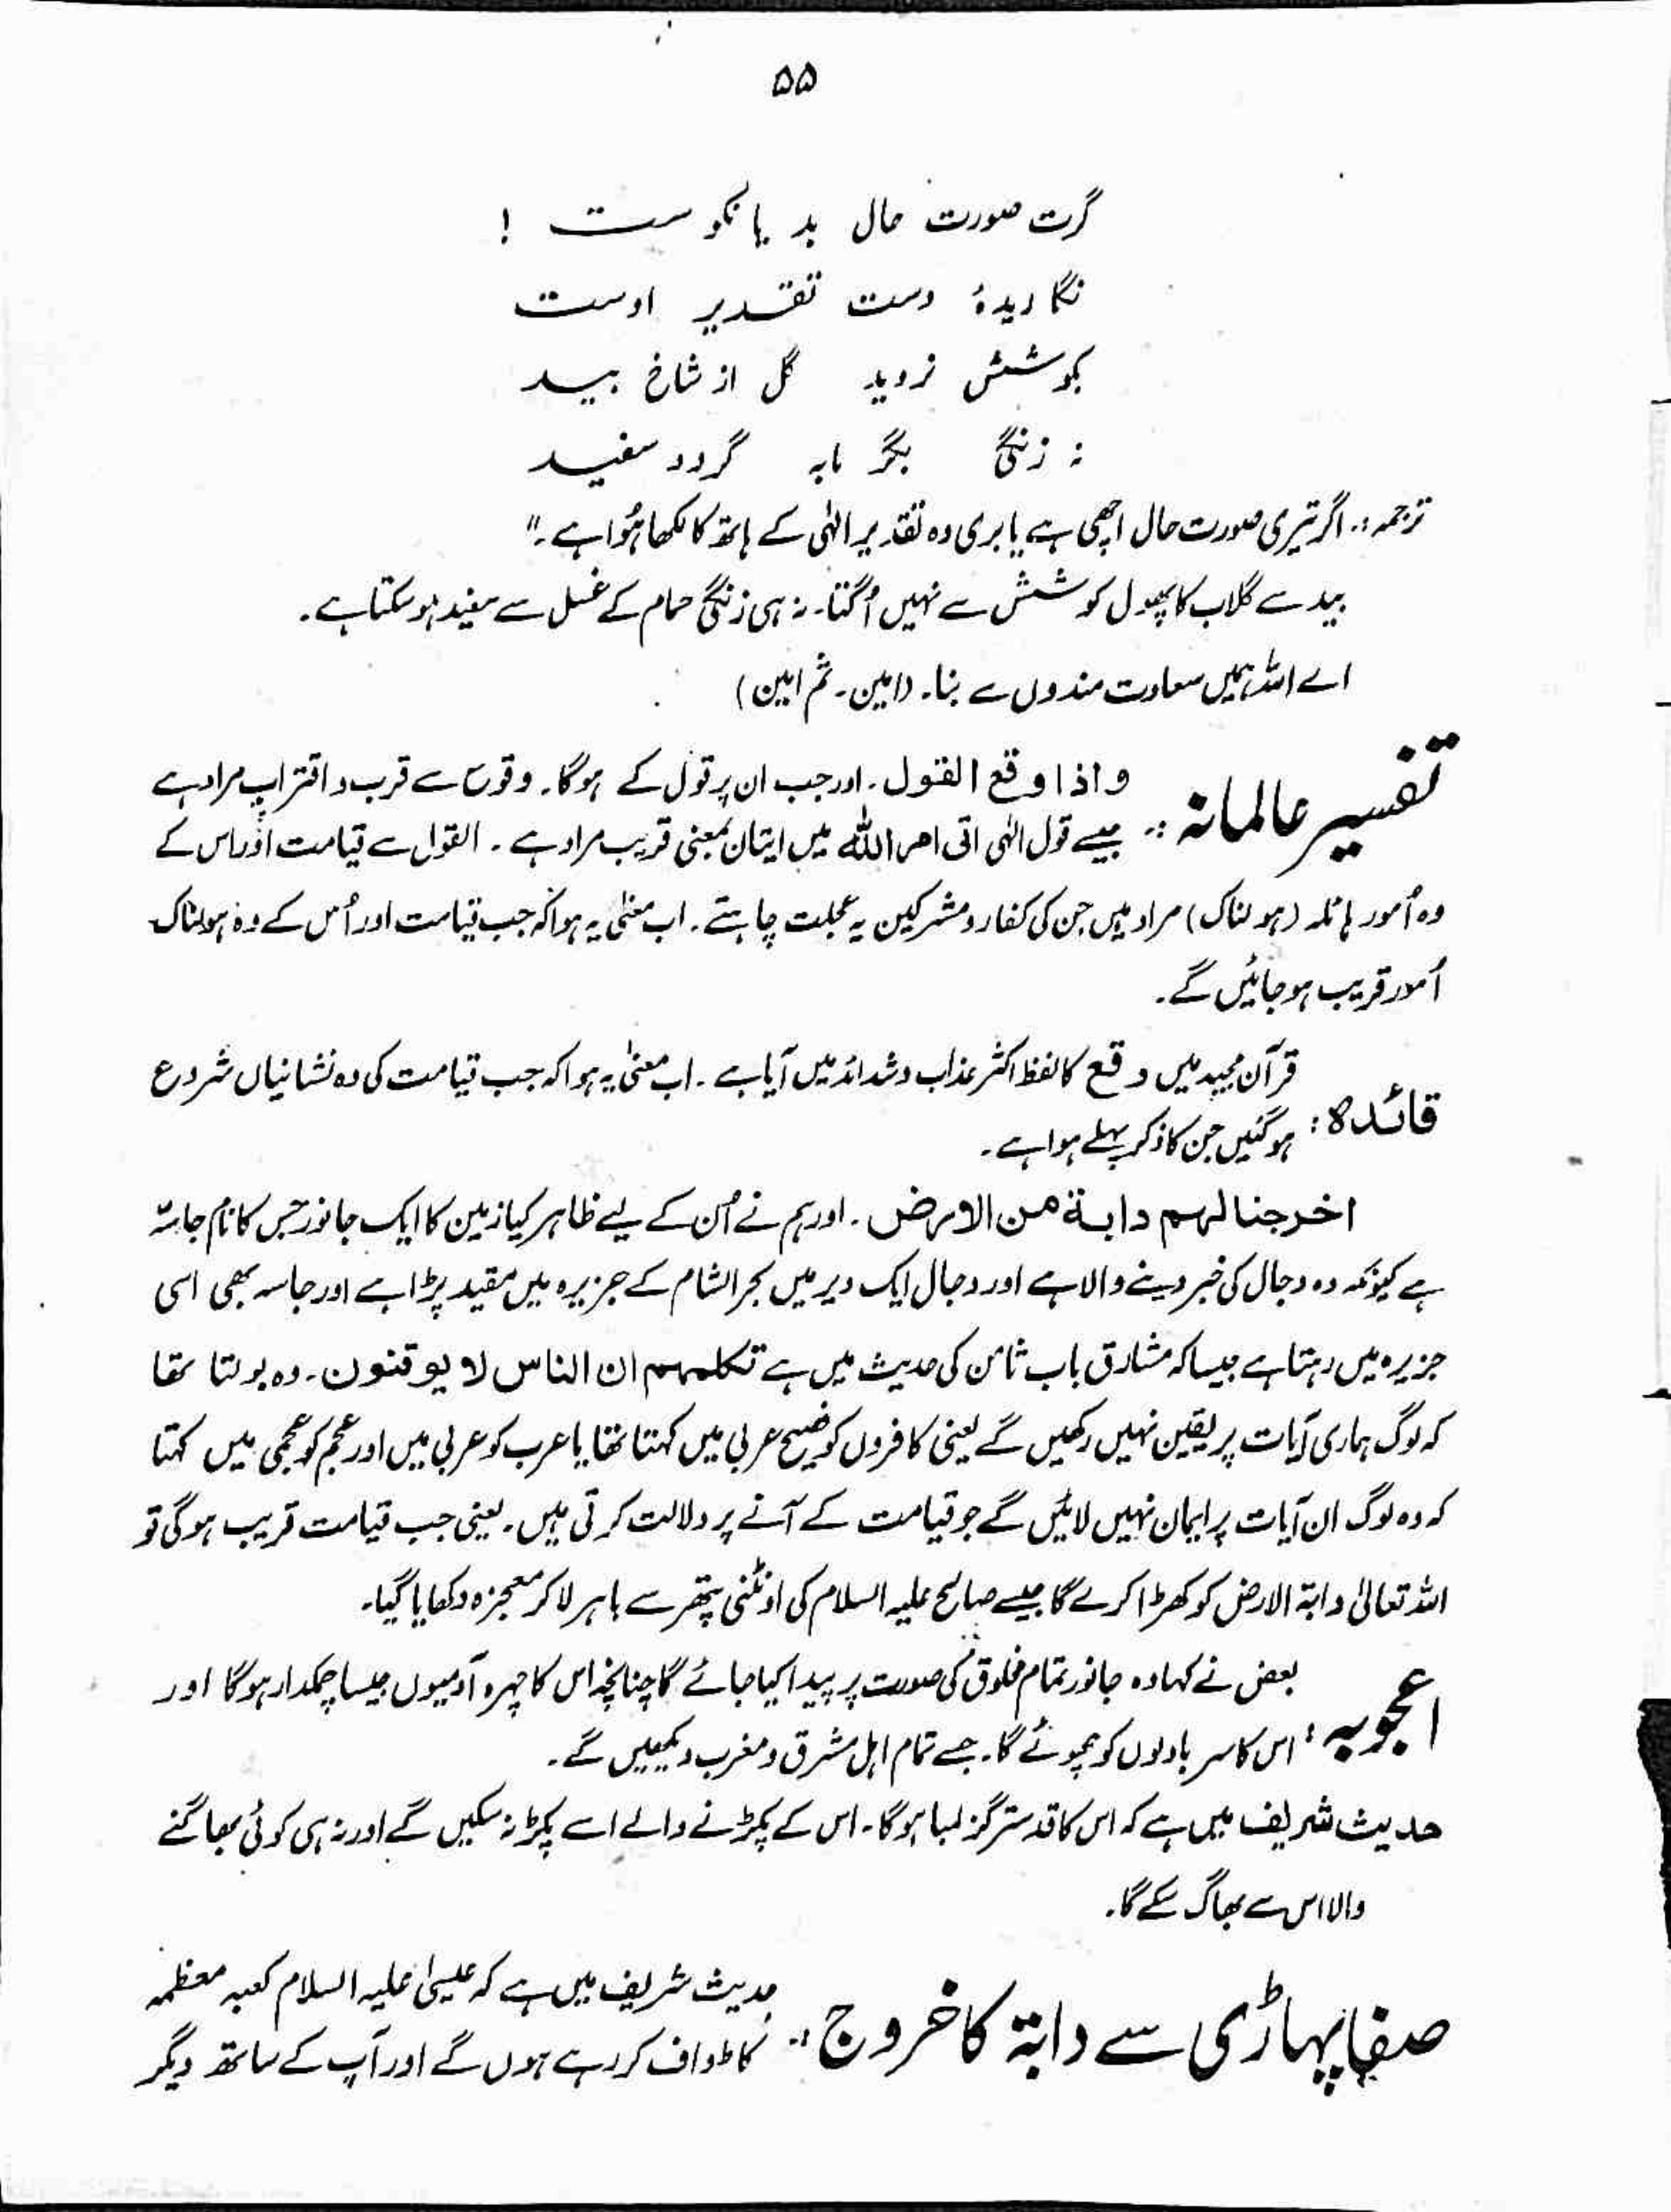 ۵۵
گرت صورت حال بد یا نکوست !
نگاریدۂ دست تقدیر اوست
بکوشش نروید گل از شاخ بید
نہ زنگی بگرمابہ گردد سفید
ترجمہ :۔ اگر تیری صورت حال اچھی ہے یا بری وہ تقدیر الٰہی کے ہاتھ کا لکھا ہُوا ہے ۔"
بید سے گلاب کا پھول کوشش سے نہیں اُگتا۔ نہ ہی زنگی حمام کے غسل سے سفید ہو سکتا ہے ۔
اے اللہ ہمیں سعادت مندوں سے بنا۔ (امین۔ ثم امین)
تفسیر عالمانہ :۔ واذا وقع القول ۔ اور جب ان پر قول کے ہوگا۔ وقوع سے قرب و اقتراب مراد ہے
جیسے قول الٰہی اتی امر اللہ میں ایتان بمعنی قریب مراد ہے ۔ القول سے قیامت اور اس کے
وہ اُمور ہائلہ (ہولناک) مراد ہیں جن کی کفار و مشرکین یہ عجلت چاہتے ۔ اب معنٰی یہ ہوا کہ جب قیامت اور اُس کے وہ ہولناک
اُمور قریب ہو جائیں گے ۔
قائدہ : قرآن مجید میں وقع کا لفظ اکثر عذاب و شدائد میں آیا ہے ۔ اب معنٰی یہ ہوا کہ جب قیامت کی وہ نشانیاں شروع
ہو گئیں جن کا ذکر پہلے ہوا ہے ۔
اخرجنا لہم دابۃ من الارض ۔ اور ہم نے اُن کے لیے ظاہر کیا زمین کا ایک جانور جس کا نام جاسہ
ہے کیونکہ وہ دجال کی خبر دینے والا ہے اور دجال ایک دیر میں بحر الشام کے جزیرہ میں مقید پڑا ہے اور جاسہ بھی اسی
جزیرہ میں رہتا ہے جیسا کہ مشارق باب ثامن کی حدیث میں ہے تکلمہم ان الناس لا یوقنون ۔ وہ بولتا تھا
کہ لوگ ہماری آیات پر یقین نہیں رکھیں گے یعنی کافروں کو فصیح عربی میں کہتا تھا یا عرب کو عربی میں اور عجم کو عجمی میں کہتا
کہ وہ لوگ ان آیات پر ایمان نہیں لائیں گے جو قیامت کے آنے پر دلالت کرتی ہیں ۔ یعنی جب قیامت قریب ہوگی تو
اللہ تعالیٰ دابۃ الارض کو کھڑا کرے گا جیسے صالح علیہ السلام کی اونٹنی پتھر سے باہر لا کر معجزہ دکھایا گیا۔
اعجوبہ : بعض نے کہا وہ جانور تمام مخلوق کی صورت پر پیدا کیا جائے گا چنانچہ اس کا چہرہ آدمیوں جیسا چمکدار ہوگا اور
اس کا سر بادلوں کو چھوئے گا۔ جسے تمام اہل مشرق و مغرب دیکھیں گے ۔
حدیث شریف میں ہے کہ اس کا قد ستر گز لمبا ہوگا۔ اس کے پکڑنے والے اسے پکڑ نہ سکیں گے اور نہ ہی کوئی بھاگنے
والا اس سے بھاگ سکے گا۔
صفا پہاڑی سے دابۃ کا خروج :۔ حدیث شریف میں ہے کہ عیسیٰ علیہ السلام کعبہ معظمہ
کا طواف کر رہے ہوں گے اور آپ کے ساتھ دیگر